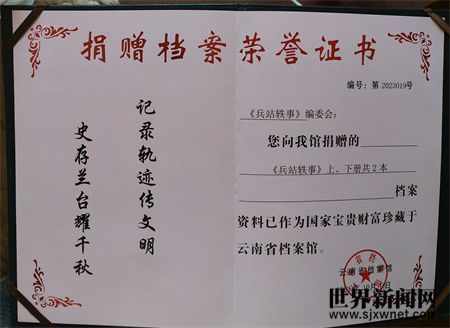 捐赠档案荣誉证书
编号：第 2023019号
记录轨迹传文明
史存兰台耀千秋
《兵站轶事》编委会：
您向我馆捐赠的
《兵站轶事》上、下册共2本
档案
资料已作为国家宝贵财富珍藏于
云南省档案馆。
云南省档案馆
世界新闻网
www.sjxwnet.com